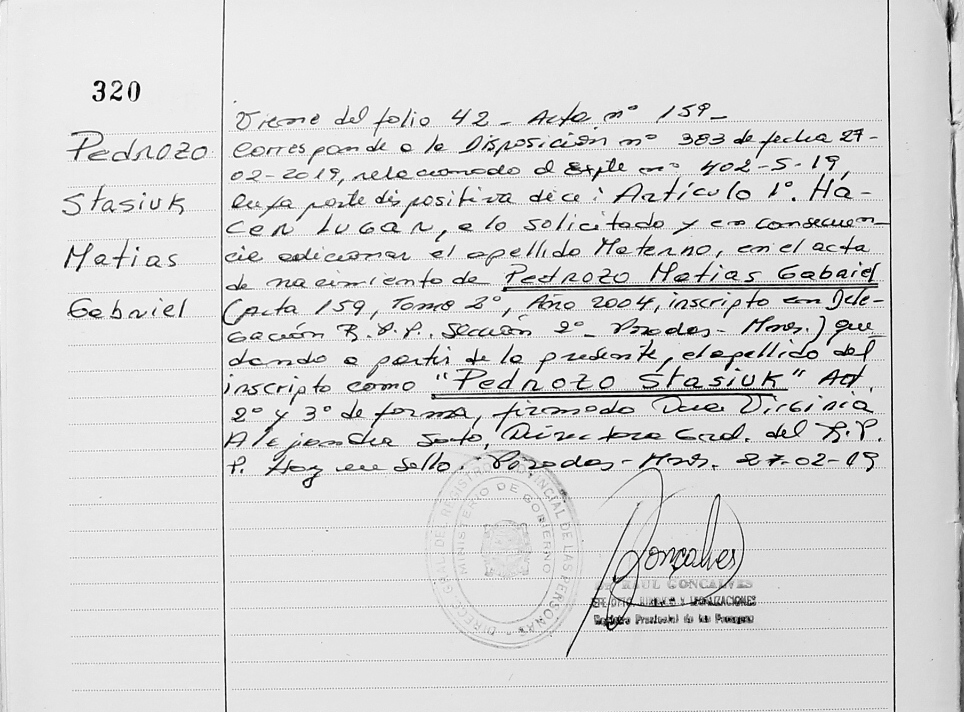 320
Pedrozo
Stasiuk
Matias
Gabriel
Viene del folio 42 - Acta nº 159 -
Corresponde a la Disposición nº 383 de fecha 27-
02-2019, relacionado al Expte nº 402-5-19,
cuya parte dispositiva dice: Artículo 1º. Ha-
cer lugar, a lo solicitado y en consecuen-
cia adicionar el apellido Materno, en el acta
de nacimiento de Pedrozo Matias Gabriel
(acta 159, Tomo 2º, Año 2004, inscripto en Dele-
gación R.P.P. Sección 2º - Posadas - Mnes.) que
dando a partir de la presente, el apellido del
inscripto como "Pedrozo Stasiuk" Art.
2º y 3º de forma, firmado Virginia
Alejandra, Directora Gral. del R.P.
P. Hay un sello. Posadas - Mnes. 27-02-19
DIRECC. GRAL. DEL REGISTRO PROVINCIAL DE LAS PERSONAS
MINISTERIO DE GOBIERNO
Gonçalves
RAUL GONCALVES
JEFE DPTO. JURIDICO Y LEGALIZACIONES
Registro Provincial de las Personas